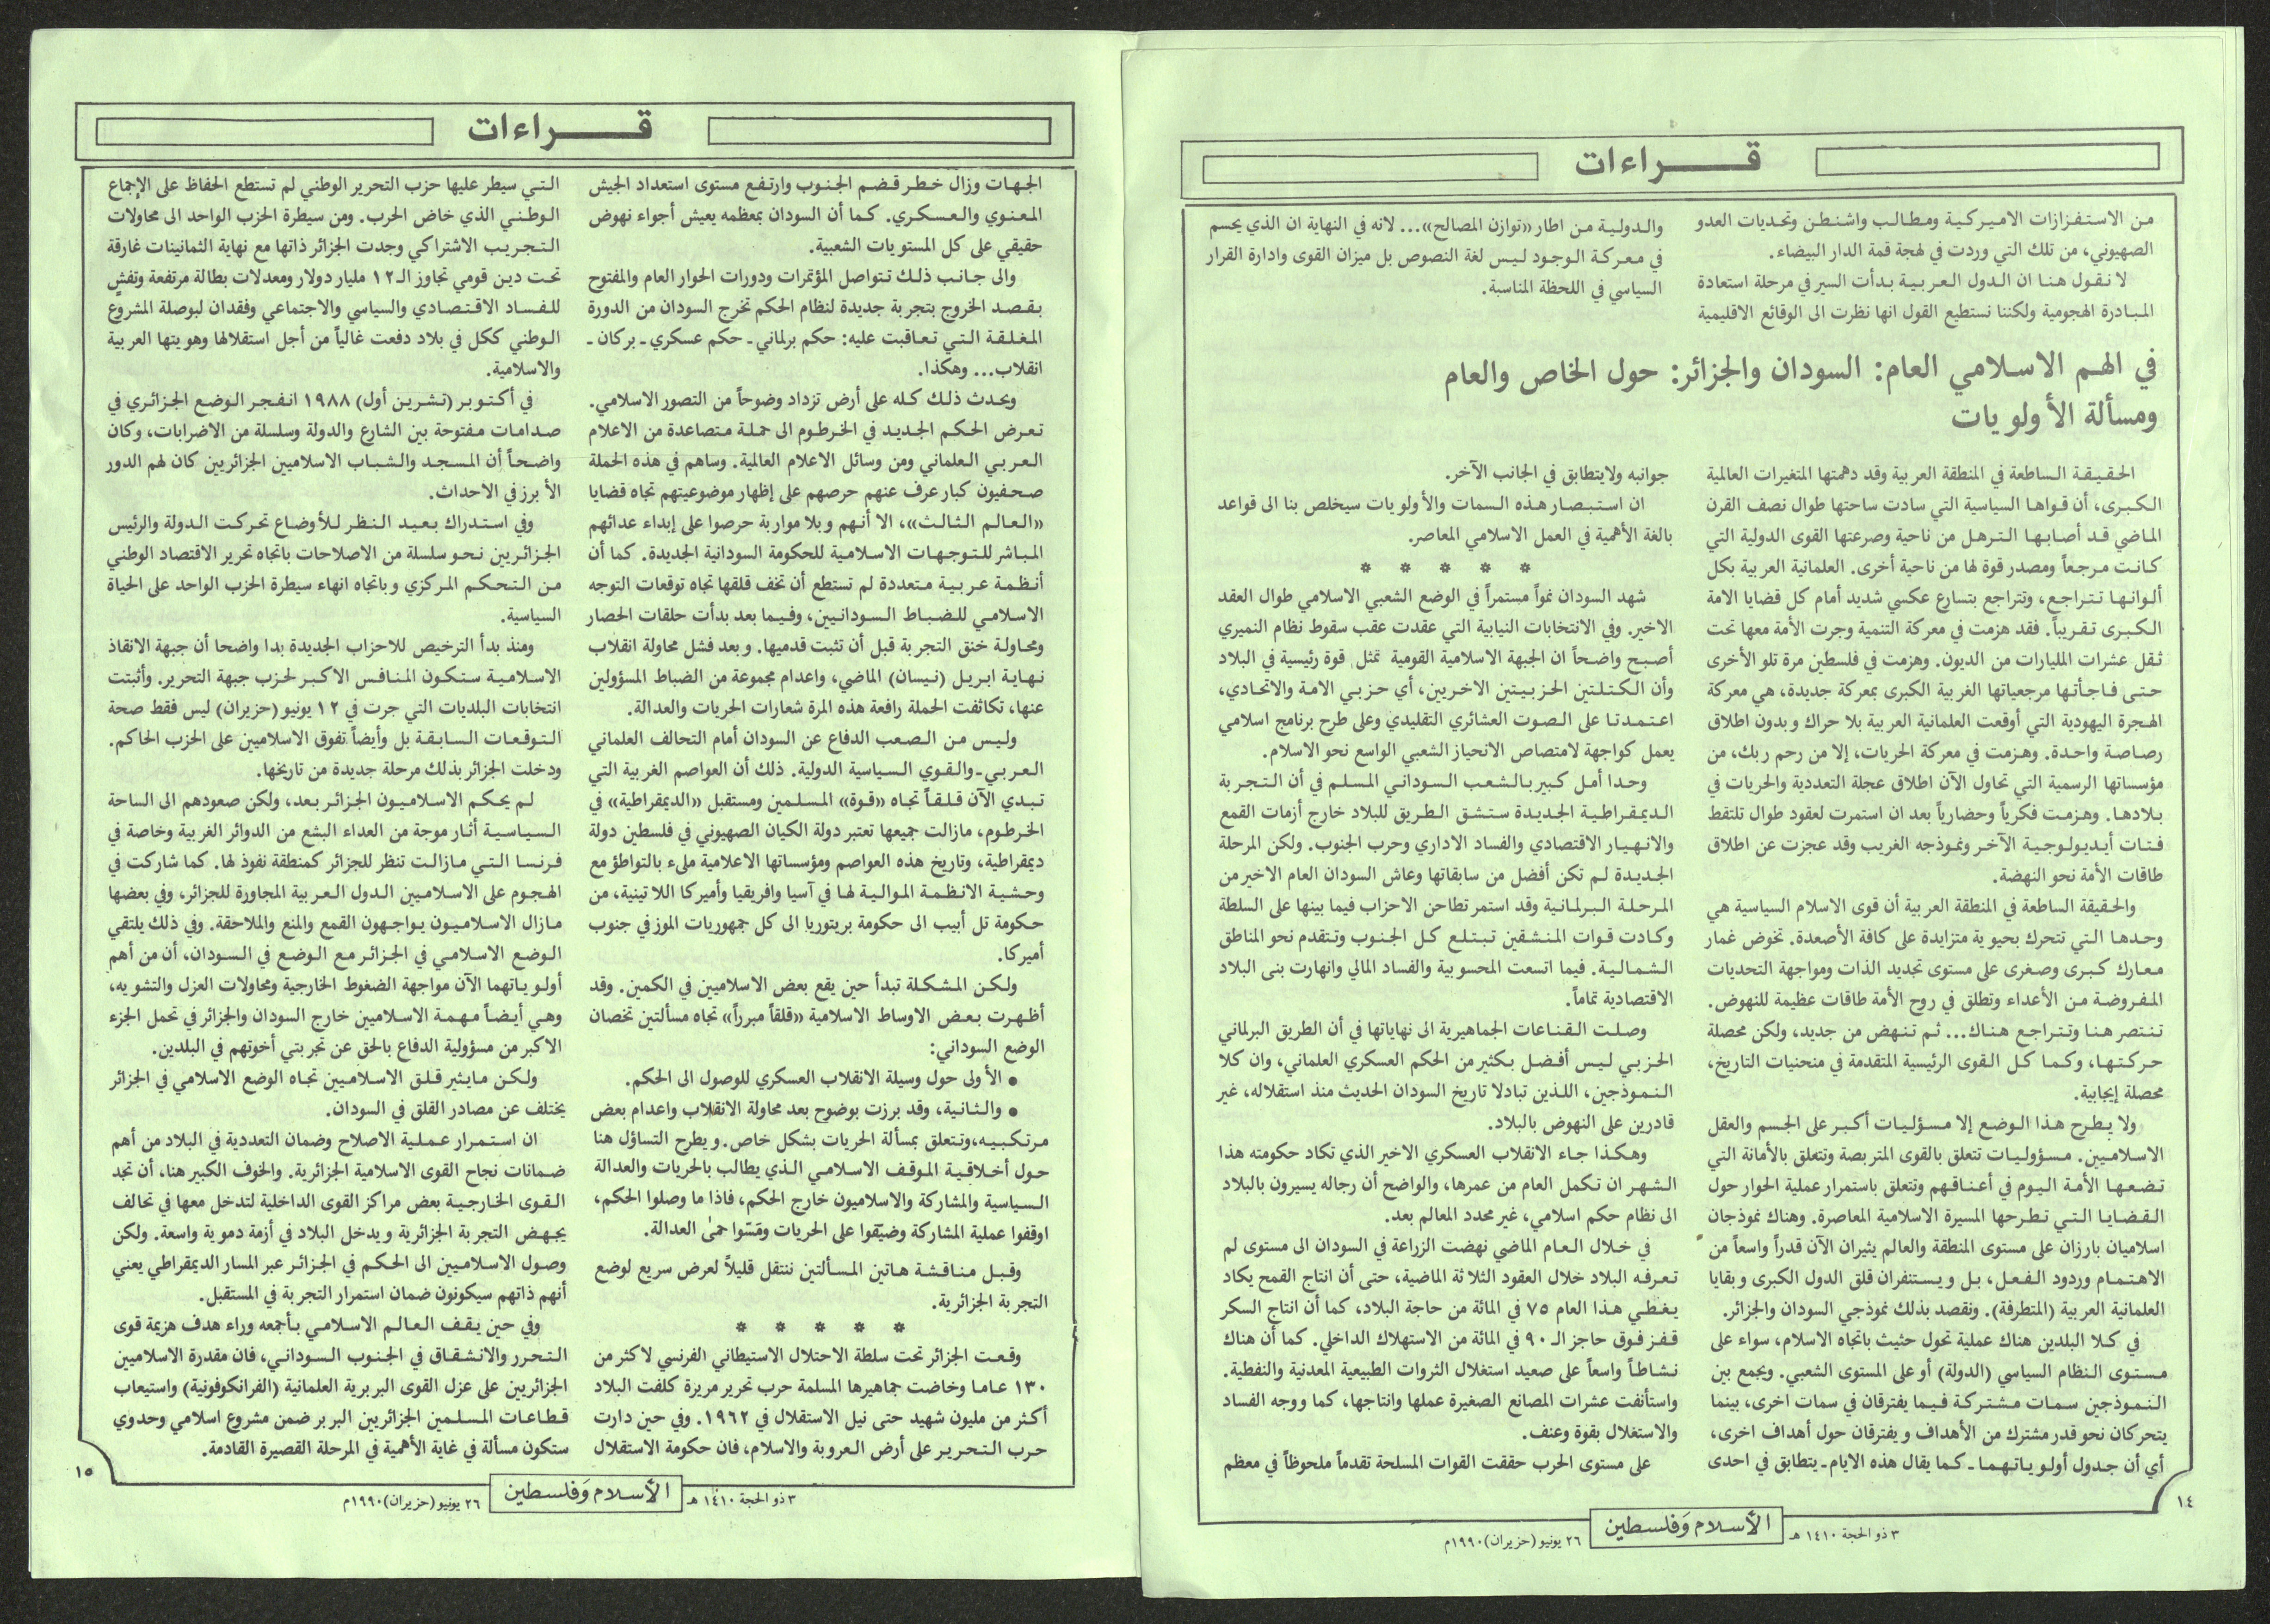 قـــراءات
من الاستفزازات الاميركية ومطالب واشنطن وتحديات العدو
الصهيوني، من تلك التي وردت في لهجة قمة الدار البيضاء.
لا نقول هنا ان الدول العربية بدأت السير في مرحلة استعادة
المبادرة الهجومية ولكننا نستطيع القول انها نظرت الى الوقائع الاقليمية
والدولية من اطار «توازن المصالح»... لانه في النهاية ان الذي يحسم
في معركة الوجود ليس لغة النصوص بل ميزان القوى وادارة القرار
السياسي في اللحظة المناسبة.
في الهم الاسلامي العام: السودان والجزائر: حول الخاص والعام
ومسألة الأولويات
الحقيقة الساطعة في المنطقة العربية وقد دهمتها المتغيرات العالمية
الكبرى، أن قواها السياسية التي سادت ساحتها طوال نصف القرن
الماضي قد أصابها الترهل من ناحية وصرعتها القوى الدولية التي
كانت مرجعاً ومصدر قوة لها من ناحية أخرى. العلمانية العربية بكل
ألوانها تتراجع، وتتراجع بتسارع عكسي شديد أمام كل قضايا الامة
الكبرى تقريباً. فقد هزمت في معركة التنمية وجرت الأمة معها تحت
ثقل عشرات المليارات من الديون. وهزمت في فلسطين مرة تلو الأخرى
حتى فاجأتها مرجعياتها الغربية الكبرى بمعركة جديدة، هي معركة
الهجرة اليهودية التي أوقعت العلمانية العربية بلا حراك وبدون اطلاق
رصاصة واحدة. وهزمت في معركة الحريات، إلا من رحم ربك، من
مؤسساتها الرسمية التي تحاول الآن اطلاق عجلة التعددية والحريات في
بلادها. وهزمت فكرياً وحضارياً بعد ان استمرت لعقود طوال تلتقط
فتات أيديولوجية الآخر ونموذجه الغريب وقد عجزت عن اطلاق
طاقات الأمة نحو النهضة.
والحقيقة الساطعة في المنطقة العربية أن قوى الاسلام السياسية هي
وحدها التي تتحرك بحيوية متزايدة على كافة الأصعدة. تخوض غمار
معارك كبرى وصغرى على مستوى تجديد الذات ومواجهة التحديات
المفروضة من الأعداء وتطلق في روح الأمة طاقات عظيمة للنهوض.
تنتصر هنا وتتراجع هناك... ثم تنهض من جديد، ولكن محصلة
حركتها، وكما كل القوى الرئيسية المتقدمة في منحنيات التاريخ،
محصلة إيجابية.
ولا يطرح هذا الوضع إلا مسؤليات أكبر على الجسم والعقل
الاسلاميين. مسؤوليات تتعلق بالقوى المتربصة وتتعلق بالأمانة التي
تضعها الأمة اليوم في أعناقهم وتتعلق باستمرار عملية الحوار حول
القضايا التي تطرحها المسيرة الاسلامية المعاصرة. وهناك نموذجان
اسلاميان بارزان على مستوى المنطقة والعالم يثيران الآن قدراً واسعاً من
الاهتمام وردود الفعل، بل ويستنفران قلق الدول الكبرى وبقايا
العلمانية العربية (المتطرفة). ونقصد بذلك نموذجي السودان والجزائر.
في كلا البلدين هناك عملية تحول حثيث باتجاه الاسلام، سواء على
مستوى النظام السياسي (الدولة) أو على المستوى الشعبي. ويجمع بين
النموذجين سمات مشتركة فيما يفترقان في سمات اخرى، بينما
يتحركان نحو قدر مشترك من الأهداف ويفترقان حول أهداف اخرى،
أي أن جدول أولوياتهما ـ كما يقال هذه الايام ـ يتطابق في احدى
جوانبه ولايتطابق في الجانب الآخر.
ان استبصار هذه السمات والأولويات سيخلص بنا الى قواعد
بالغة الأهمية في العمل الاسلامي المعاصر.
* * * * *
شهد السودان نمواً مستمراً في الوضع الشعبي الاسلامي طوال العقد
الاخير. وفي الانتخابات النيابية التي عقدت عقب سقوط نظام النميري
أصبح واضحاً ان الجبهة الاسلامية القومية تمثل قوة رئيسية في البلاد
وأن الكتلتين الحزبيتين الاخريين، أي حزبي الامة والاتحادي،
اعتمدتا على الصوت العشائري التقليدي وعلى طرح برنامج اسلامي
يعمل كواجهة لامتصاص الانحياز الشعبي الواسع نحو الاسلام.
وحدا أمل كبير بالشعب السوداني المسلم في أن التجربة
الديمقراطية الجديدة ستشق الطريق للبلاد خارج أزمات القمع
والانهيار الاقتصادي والفساد الاداري وحرب الجنوب. ولكن المرحلة
الجديدة لم تكن أفضل من سابقاتها وعاش السودان العام الاخير من
المرحلة البرلمانية وقد استمر تطاحن الاحزاب فيما بينها على السلطة
وكادت قوات المنشقين تبتلع كل الجنوب وتتقدم نحو المناطق
الشمالية. فيما اتسعت المحسوبية والفساد المالي وانهارت بنى البلاد
الاقتصادية تماماً.
وصلت القناعات الجماهيرية الى نهاياتها في أن الطريق البرلماني
الحزبي ليس أفضل بكثير من الحكم العسكري العلماني، وان كلا
النموذجين، اللذين تبادلا تاريخ السودان الحديث منذ استقلاله، غير
قادرين على النهوض بالبلاد.
وهكذا جاء الانقلاب العسكري الاخير الذي تكاد حكومته هذا
الشهر ان تكمل العام من عمرها، والواضح أن رجاله يسيرون بالبلاد
الى نظام حكم اسلامي، غير محدد المعالم بعد.
في خلال العام الماضي نهضت الزراعة في السودان الى مستوى لم
تعرفه البلاد خلال العقود الثلاثة الماضية، حتى أن انتاج القمح يكاد
يغطي هذا العام ٧٥ في المائة من حاجة البلاد، كما أن انتاج السكر
قفز فوق حاجز الـ ٩٠ في المائة من الاستهلاك الداخلي. كما أن هناك
نشاطاً واسعاً على صعيد استغلال الثروات الطبيعية المعدنية والنفطية.
واستأنفت عشرات المصانع الصغيرة عملها وانتاجها، كما ووجه الفساد
والاستغلال بقوة وعنف.
على مستوى الحرب حققت القوات المسلحة تقدماً ملحوظاً في معظم
١٤
٣ ذو الحجة ١٤١٠ هـ
الأسلام وَفلسطين
٢٦ يونيو (حزيران) ١٩٩٠م
قـــراءات
الجهات وزال خطر قضم الجنوب وارتفع مستوى استعداد الجيش
المعنوي والعسكري. كما أن السودان بمعظمه يعيش أجواء نهوض
حقيقي على كل المستويات الشعبية.
والى جانب ذلك تتواصل المؤتمرات ودورات الحوار العام والمفتوح
بقصد الخروج بتجربة جديدة لنظام الحكم تخرج السودان من الدورة
المغلقة التي تعاقبت عليه: حكم برلماني ـ حكم عسكري ـ بركان ـ
انقلاب... وهكذا.
ويحدث ذلك كله على أرض تزداد وضوحاً من التصور الاسلامي.
تعرض الحكم الجديد في الخرطوم الى حملة متصاعدة من الاعلام
العربي العلماني ومن وسائل الاعلام العالمية. وساهم في هذه الحملة
صحفيون كبار عرف عنهم حرصهم على إظهار موضوعيتهم تجاه قضايا
«العالم الثالث»، الا أنهم وبلا مواربة حرصوا على إبداء عدائهم
المباشر للتوجهات الاسلامية للحكومة السودانية الجديدة. كما أن
أنظمة عربية متعددة لم تستطع أن تخف قلقها تجاه توقعات التوجه
الاسلامي للضباط السودانيين، وفيما بعد بدأت حلقات الحصار
ومحاولة خنق التجربة قبل أن تثبت قدميها. وبعد فشل محاولة انقلاب
نهاية ابريل (نيسان) الماضي، واعدام مجموعة من الضباط المسؤولين
عنها، تكاثفت الحملة رافعة هذه المرة شعارات الحريات والعدالة.
وليس من الصعب الدفاع عن السودان أمام التحالف العلماني
العربي ـ والقوي السياسية الدولية. ذلك أن العواصم الغربية التي
تبدي الآن قلقاً تجاه «قوة» المسلمين ومستقبل «الديمقراطية» في
الخرطوم، مازالت جميعها تعتبر دولة الكيان الصهيوني في فلسطين دولة
ديمقراطية، وتاريخ هذه العواصم ومؤسساتها الاعلامية مليء بالتواطؤ مع
وحشية الانظمة الموالية لها في آسيا وافريقيا وأميركا اللاتينية، من
حكومة تل أبيب الى حكومة بريتوريا الى كل جمهوريات الموز في جنوب
أميركا.
ولكن المشكلة تبدأ حين يقع بعض الاسلاميين في الكمين. وقد
أظهرت بعض الاوساط الاسلامية «قلقاً مبرراً» تجاه مسألتين تخصان
الوضع السوداني:
● الأولى حول وسيلة الانقلاب العسكري للوصول الى الحكم.
● والثانية، وقد برزت بوضوح بعد محاولة الانقلاب واعدام بعض
مرتكبيه، وتتعلق بمسألة الحريات بشكل خاص. ويطرح التساؤل هنا
حول أخلاقية الموقف الاسلامي الذي يطالب بالحريات والعدالة
السياسية والمشاركة والاسلاميون خارج الحكم، فاذا ما وصلوا الحكم،
اوقفوا عملية المشاركة وضيّقوا على الحريات ومَسّوا حمىٰ العدالة.
وقبل مناقشة هاتين المسألتين ننتقل قليلاً لعرض سريع لوضع
التجربة الجزائرية.
* * * * *
وقعت الجزائر تحت سلطة الاحتلال الاستيطاني الفرنسي لاكثر من
١٣٠ عاما وخاضت جماهيرها المسلمة حرب تحرير مريرة كلفت البلاد
أكثر من مليون شهيد حتى نيل الاستقلال في ١٩٦٢. وفي حين دارت
حرب التحرير على أرض العروبة والاسلام، فان حكومة الاستقلال
التي سيطر عليها حزب التحرير الوطني لم تستطع الحفاظ على الإجماع
الوطني الذي خاض الحرب. ومن سيطرة الحزب الواحد الى محاولات
التجريب الاشتراكي وجدت الجزائر ذاتها مع نهاية الثمانينات غارقة
تحت دين قومي تجاوز الـ ١٢ مليار دولار ومعدلات بطالة مرتفعة وتفشٍ
للفساد الاقتصادي والسياسي والاجتماعي وفقدان لبوصلة المشروع
الوطني ككل في بلاد دفعت غالياً من أجل استقلالها وهويتها العربية
والاسلامية.
في أكتوبر (تشرين أول) ١٩٨٨ انفجر الوضع الجزائري في
صدامات مفتوحة بين الشارع والدولة وسلسلة من الاضرابات، وكان
واضحاً أن المسجد والشباب الاسلاميين الجزائريين كان لهم الدور
الأبرز في الاحداث.
وفي استدراك بعيد النظر للأوضاع تحركت الدولة والرئيس
الجزائريين نحو سلسلة من الاصلاحات باتجاه تحرير الاقتصاد الوطني
من التحكم المركزي وباتجاه انهاء سيطرة الحزب الواحد على الحياة
السياسية.
ومنذ بدأ الترخيص للاحزاب الجديدة بدا واضحا أن جبهة الانقاذ
الاسلامية ستكون المنافس الاكبر لحزب جبهة التحرير. وأثبتت
انتخابات البلديات التي جرت في ١٢ يونيو (حزيران) ليس فقط صحة
التوقعات السابقة بل وأيضاً تفوق الاسلاميين على الحزب الحاكم.
ودخلت الجزائر بذلك مرحلة جديدة من تاريخها.
لم يحكم الاسلاميون الجزائر بعد، ولكن صعودهم الى الساحة
السياسية أثار موجة من العداء البشع من الدوائر الغربية وخاصة في
فرنسا التي مازالت تنظر للجزائر كمنطقة نفوذ لها. كما شاركت في
الهجوم على الاسلاميين الدول العربية المجاورة للجزائر، وفي بعضها
مازال الاسلاميون يواجهون القمع والمنع والملاحقة. وفي ذلك يلتقي
الوضع الاسلامي في الجزائر مع الوضع في السودان، أن من أهم
أولوياتهما الآن مواجهة الضغوط الخارجية ومحاولات العزل والتشويه،
وهي أيضاً مهمة الاسلاميين خارج السودان والجزائر في تحمل الجزء
الاكبر من مسؤولية الدفاع بالحق عن تجربتي أخوتهم في البلدين.
ولكن مايثير قلق الاسلاميين تجاه الوضع الاسلامي في الجزائر
يختلف عن مصادر القلق في السودان.
ان استمرار عملية الاصلاح وضمان التعددية في البلاد من أهم
ضمانات نجاح القوى الاسلامية الجزائرية. والخوف الكبير هنا، أن تجد
القوى الخارجية بعض مراكز القوى الداخلية لتدخل معها في تحالف
يجهض التجربة الجزائرية ويدخل البلاد في أزمة دموية واسعة. ولكن
وصول الاسلاميين الى الحكم في الجزائر عبر المسار الديمقراطي يعني
أنهم ذاتهم سيكونون ضمان استمرار التجربة في المستقبل.
وفي حين يقف العالم الاسلامي بأجمعه وراء هدف هزيمة قوى
التحرر والانشقاق في الجنوب السوداني، فان مقدرة الاسلاميين
الجزائريين على عزل القوى البربرية العلمانية (الفرانكوفونية) واستيعاب
قطاعات المسلمين الجزائريين البربر ضمن مشروع اسلامي وحدوي
ستكون مسألة في غاية الأهمية في المرحلة القصيرة القادمة.
١٥
٣ ذو الحجة ١٤١٠ هـ
الأسلام وَفلسطين
٢٦ يونيو (حزيران) ١٩٩٠م